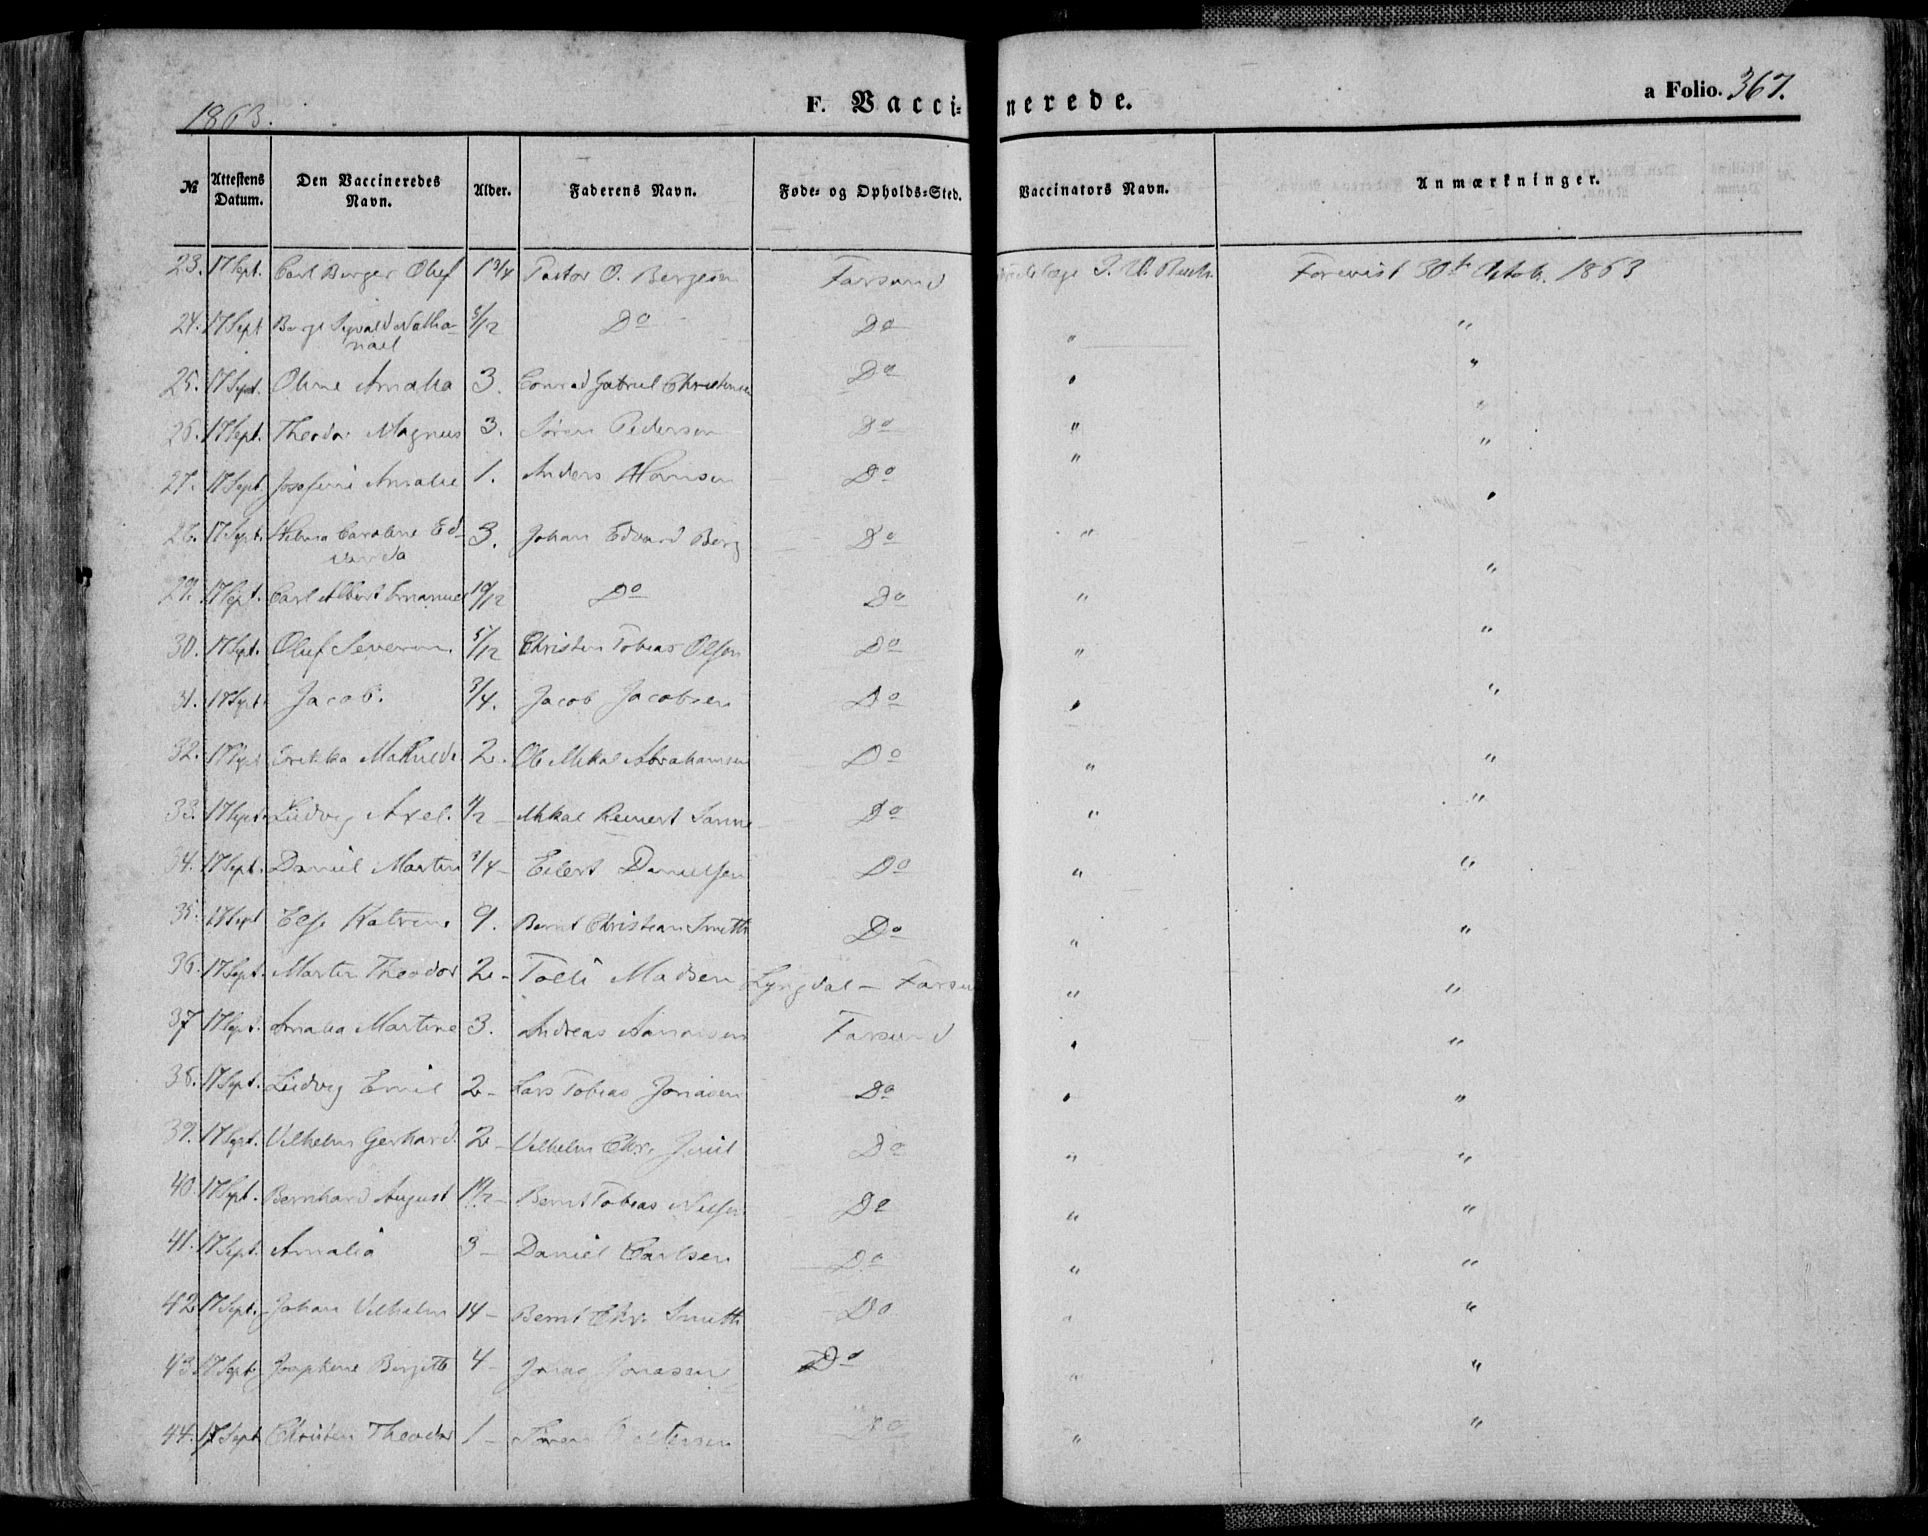 1863.
F. Vaccinerede.
a Folio. 367.
№ Attestens Datum. Den Vaccineredes Navn. Alder. Faderens Navn. Føde- og Opholds-Sted. Vaccinators Navn. Anmærkninger.
23. 17 Sept. Carl Berger Oluf 1 3/4 Pastor O. Bergesen Farsund Forevist 30te Octob. 1863
24. 17 Sept Berge Sigvald Natha-
nael 5/12 Do Do " "
25. 17 Sept. Oline Amalia 3. Conrad Gabriel Christensen Do " "
26. 17 Sept. Theodor Magnus 3. Søren Pedersen Do " "
27. 17 Sept. Josefine Amalie 1. Anders Hansen Do " "
28. 17 Sept. Caroline Ed-
varda 3. Johan Edvard Berg Do " "
29. 17 Sept. Carl Albert Emanuel 10/12 Do Do " "
30. 17 Sept. Oluf Severin 5/12 Christen Tobias Olsen Do " "
31. 17 Sept Jacob. 3/4. Jacob Jacobsen Do " "
32. 17 Sept Erikka Mathilde 2. Ole Mikal Abrahamsen Do " "
33. 17 Sept Ludvig Axel. 1/2 Mikal Reinert Do " "
34. 17 Sept. Daniel Martin 3/4 Eilert Danielsen Do " "
35. 17 Sept Else Katrine 9. Bernt Christian Smith Do " "
36. 17 Sept. Martin Theodor 2 - Tolli Madsen Lyngdal - Farsund " "
37 17 Sept. Amalia Martine 3. Andreas Aanensen Farsund " "
38. 17 Sept. Ludvig Emil 2 - Lars Tobias Jonasen Do " "
39. 17 Sept. Vilhelm Gerhard. 2 - Vilhelm Chr. Juul Do " "
40. 17 Sept. Bernhard August 1 1/2 - Bernt Tobias Nilsen Do " "
41. 17 Sept. Amalia 3 - Daniel Carlsen Do " "
42 17 Sept. Johan Vilhelm 14 - Bernt Chr. Smith Do " "
43 17 Sept. Josephine Bergitte 4 - Jonas Jonassen Do " "
44. 17 Sept Christen Theodor 1 - Do " "